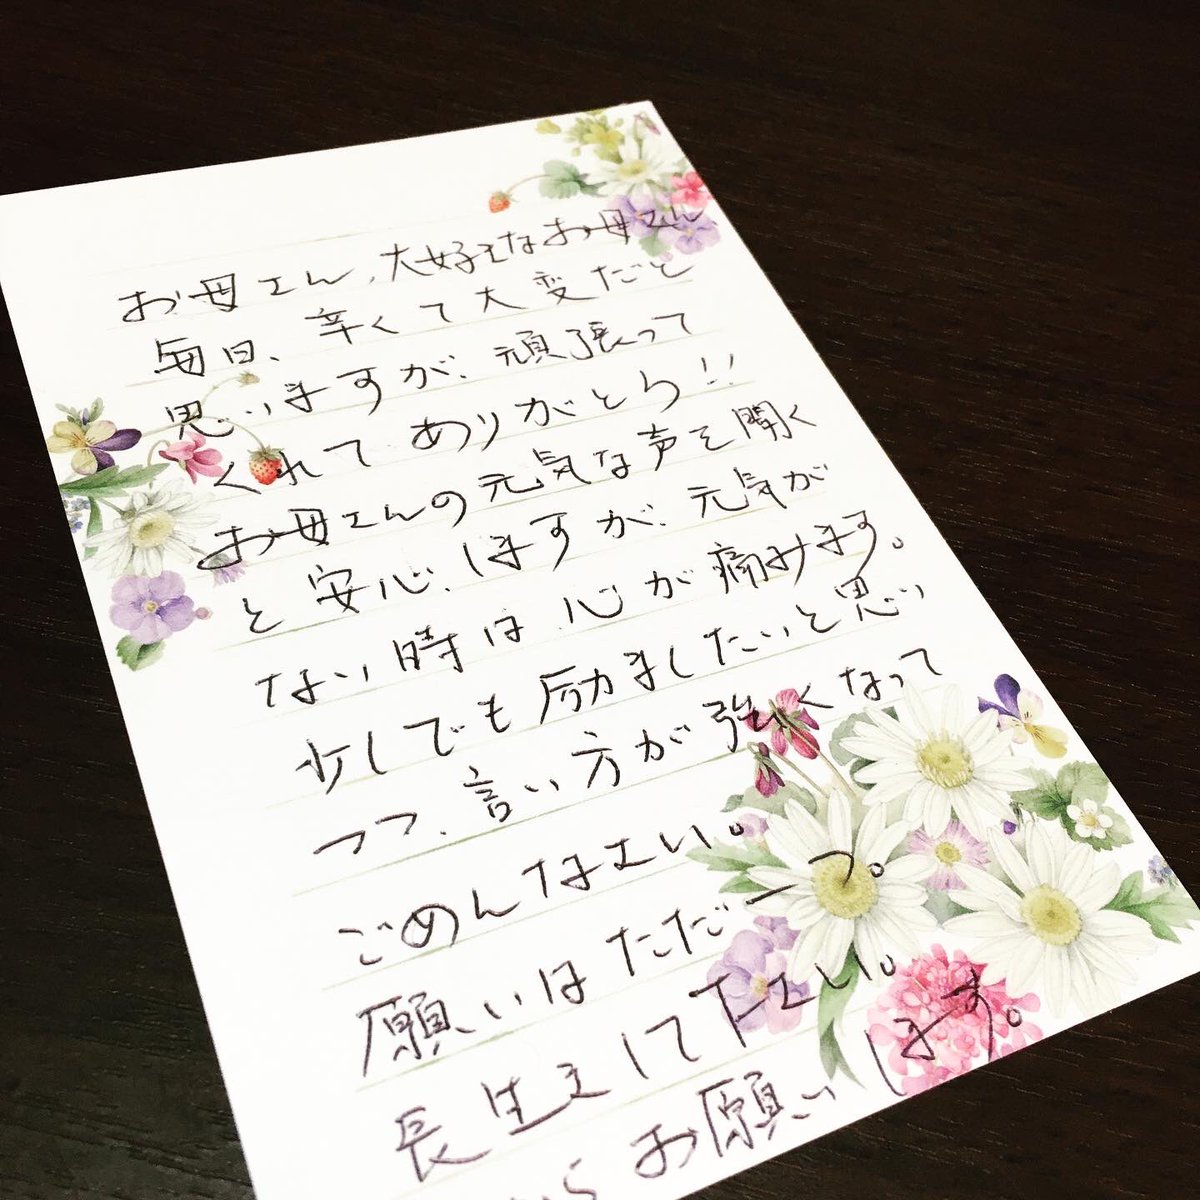 お母さん、大好きなお母さん
毎日、辛くて大変だと
思いますが、頑張って
くれてありがとう!!
お母さんの元気な声を聞く
と安心しますが、元気が
ない時は心が痛みます。
少しでも励ましたいと思い
つつ、言い方が強くなって
ごめんなさい。
願いはただ一つ。
長生きして下さい。
らお願いします。